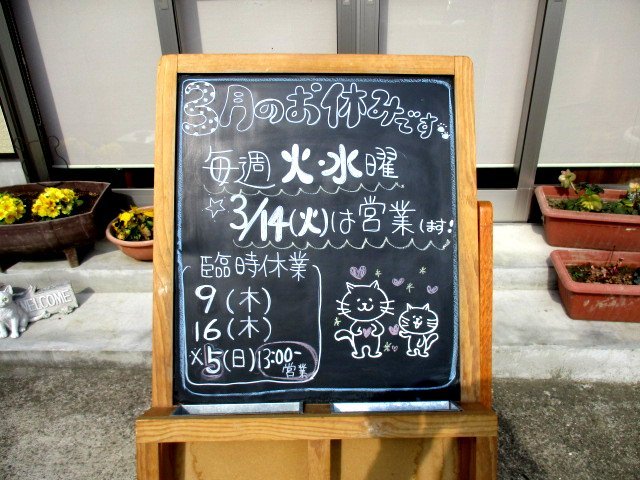 3月のお休みです
毎週 火・水曜
☆3/14(火)は営業します!
臨時休業
9(木)
16(木)
※5(日)13:00-
営業
WELCOME